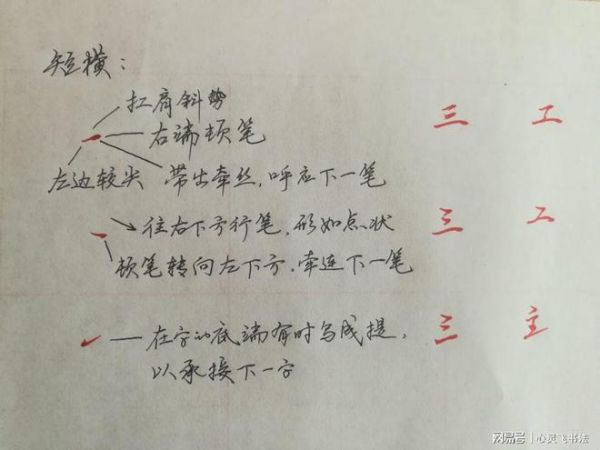 短横：
扛肩斜势
右端顿笔
左边较尖 带出牵丝，呼应下一笔
三 工
往右下方行笔，形如点状
顿笔转向左下方，牵连下一笔
三 工
在字的底端有时写成提，
以承接下一字
三 主
网易号 | 心灵飞书法